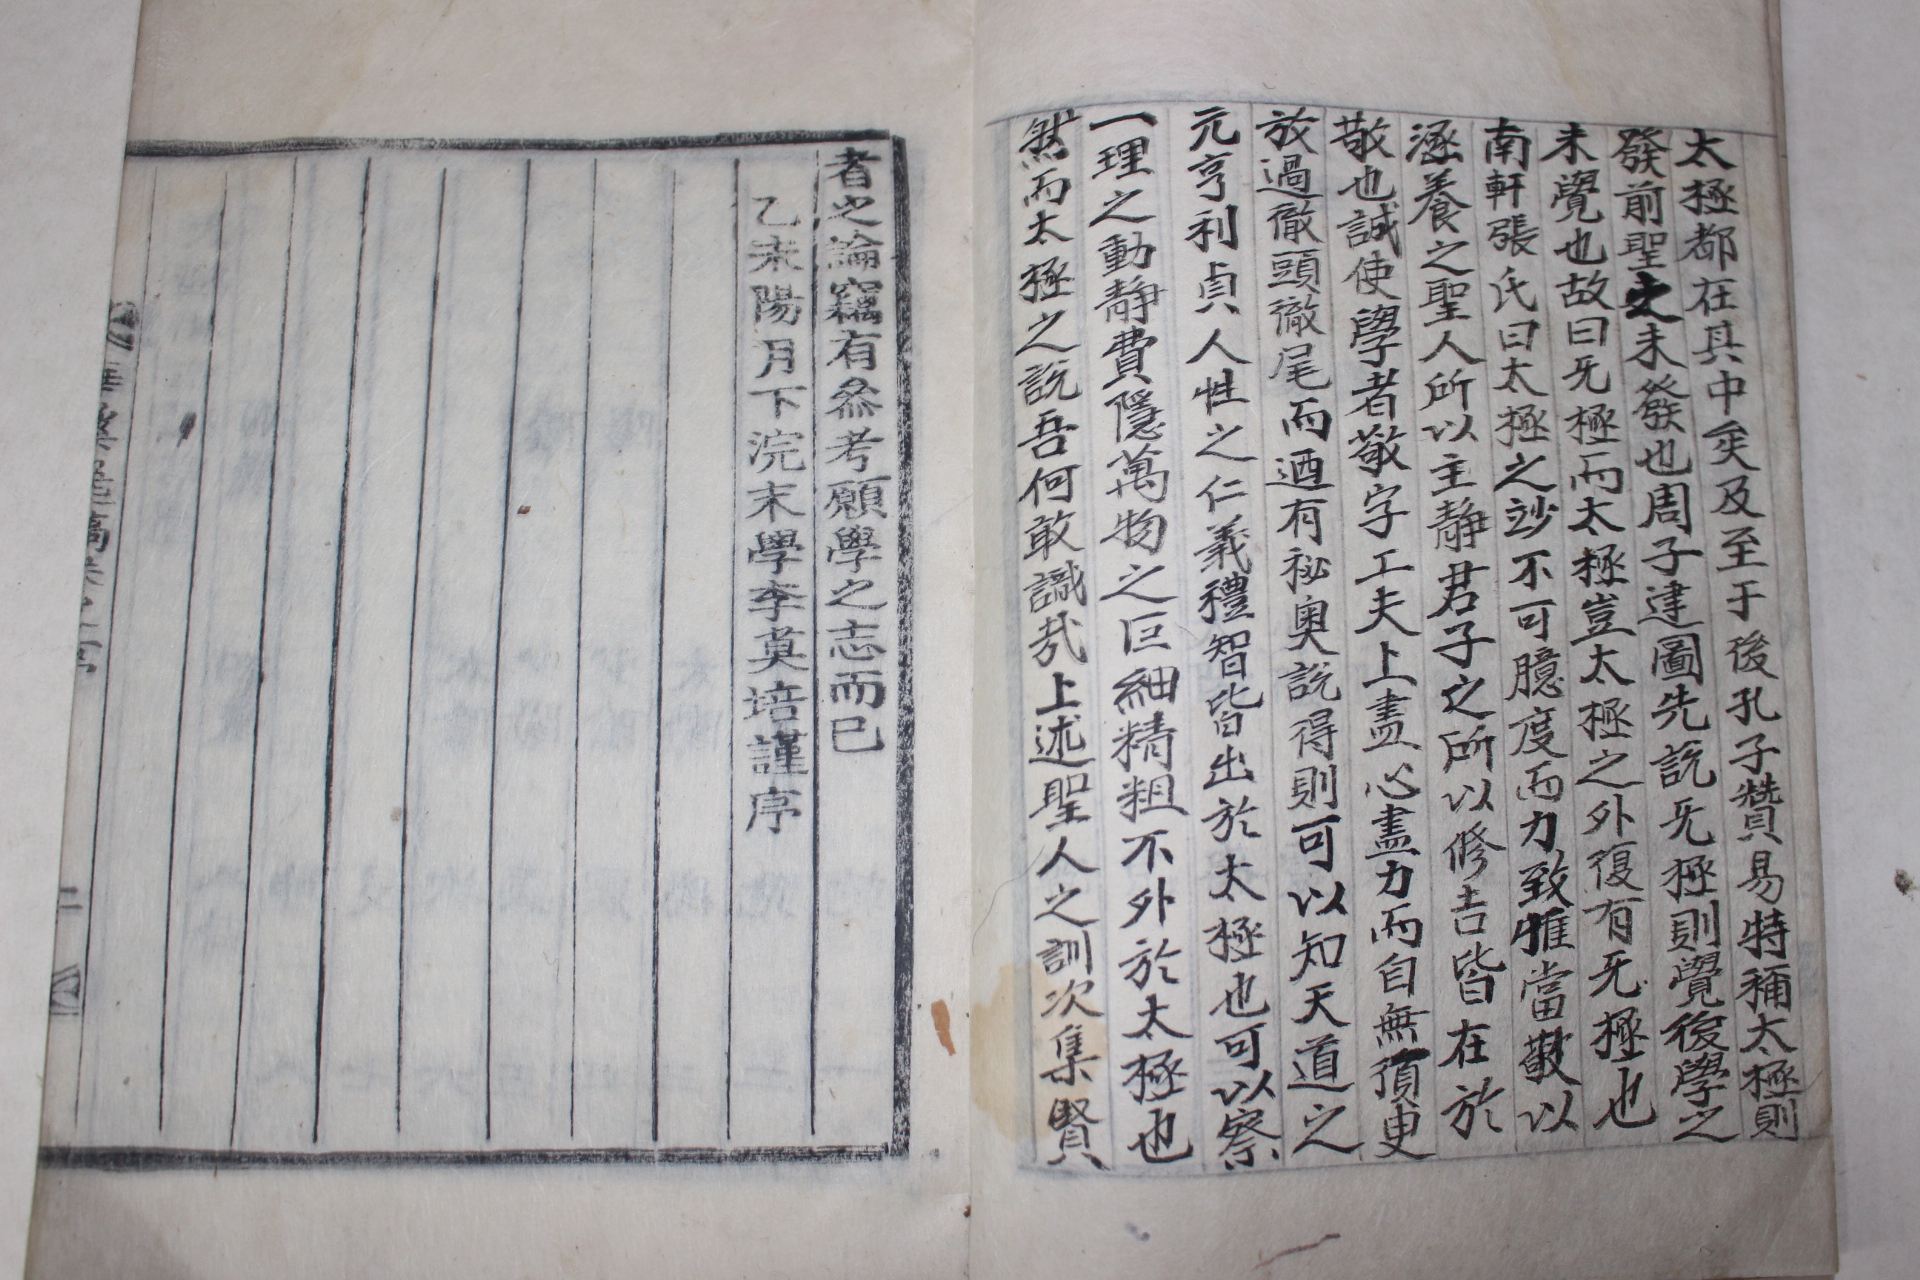 太極都在其中矣及至于後孔子贊易特稱太極則
發前聖之未發也周子建圖先說旡極則覺後學之
未覺也故曰旡極而太極豈太極之外復有旡極也
南軒張氏曰太極之妙不可臆度而力致惟當敬以
涵養之聖人所以主靜君子之所以修吉皆在於
敬也誠使學者敬字工夫上盡心盡力而自無須更
放過徹頭徹尾而迺有祕奧說得則可以知天道之
元亨利貞人性之仁義禮智皆出於太極也可以察
一理之動靜費隱萬物之巨細精粗不外於太極也
然而太極之說吾何敢識㢤上述聖人之訓次集賢
者之論竊有叅考願學之志而已
乙未陽月下浣末學李莫培謹序
遺稿卷之
二